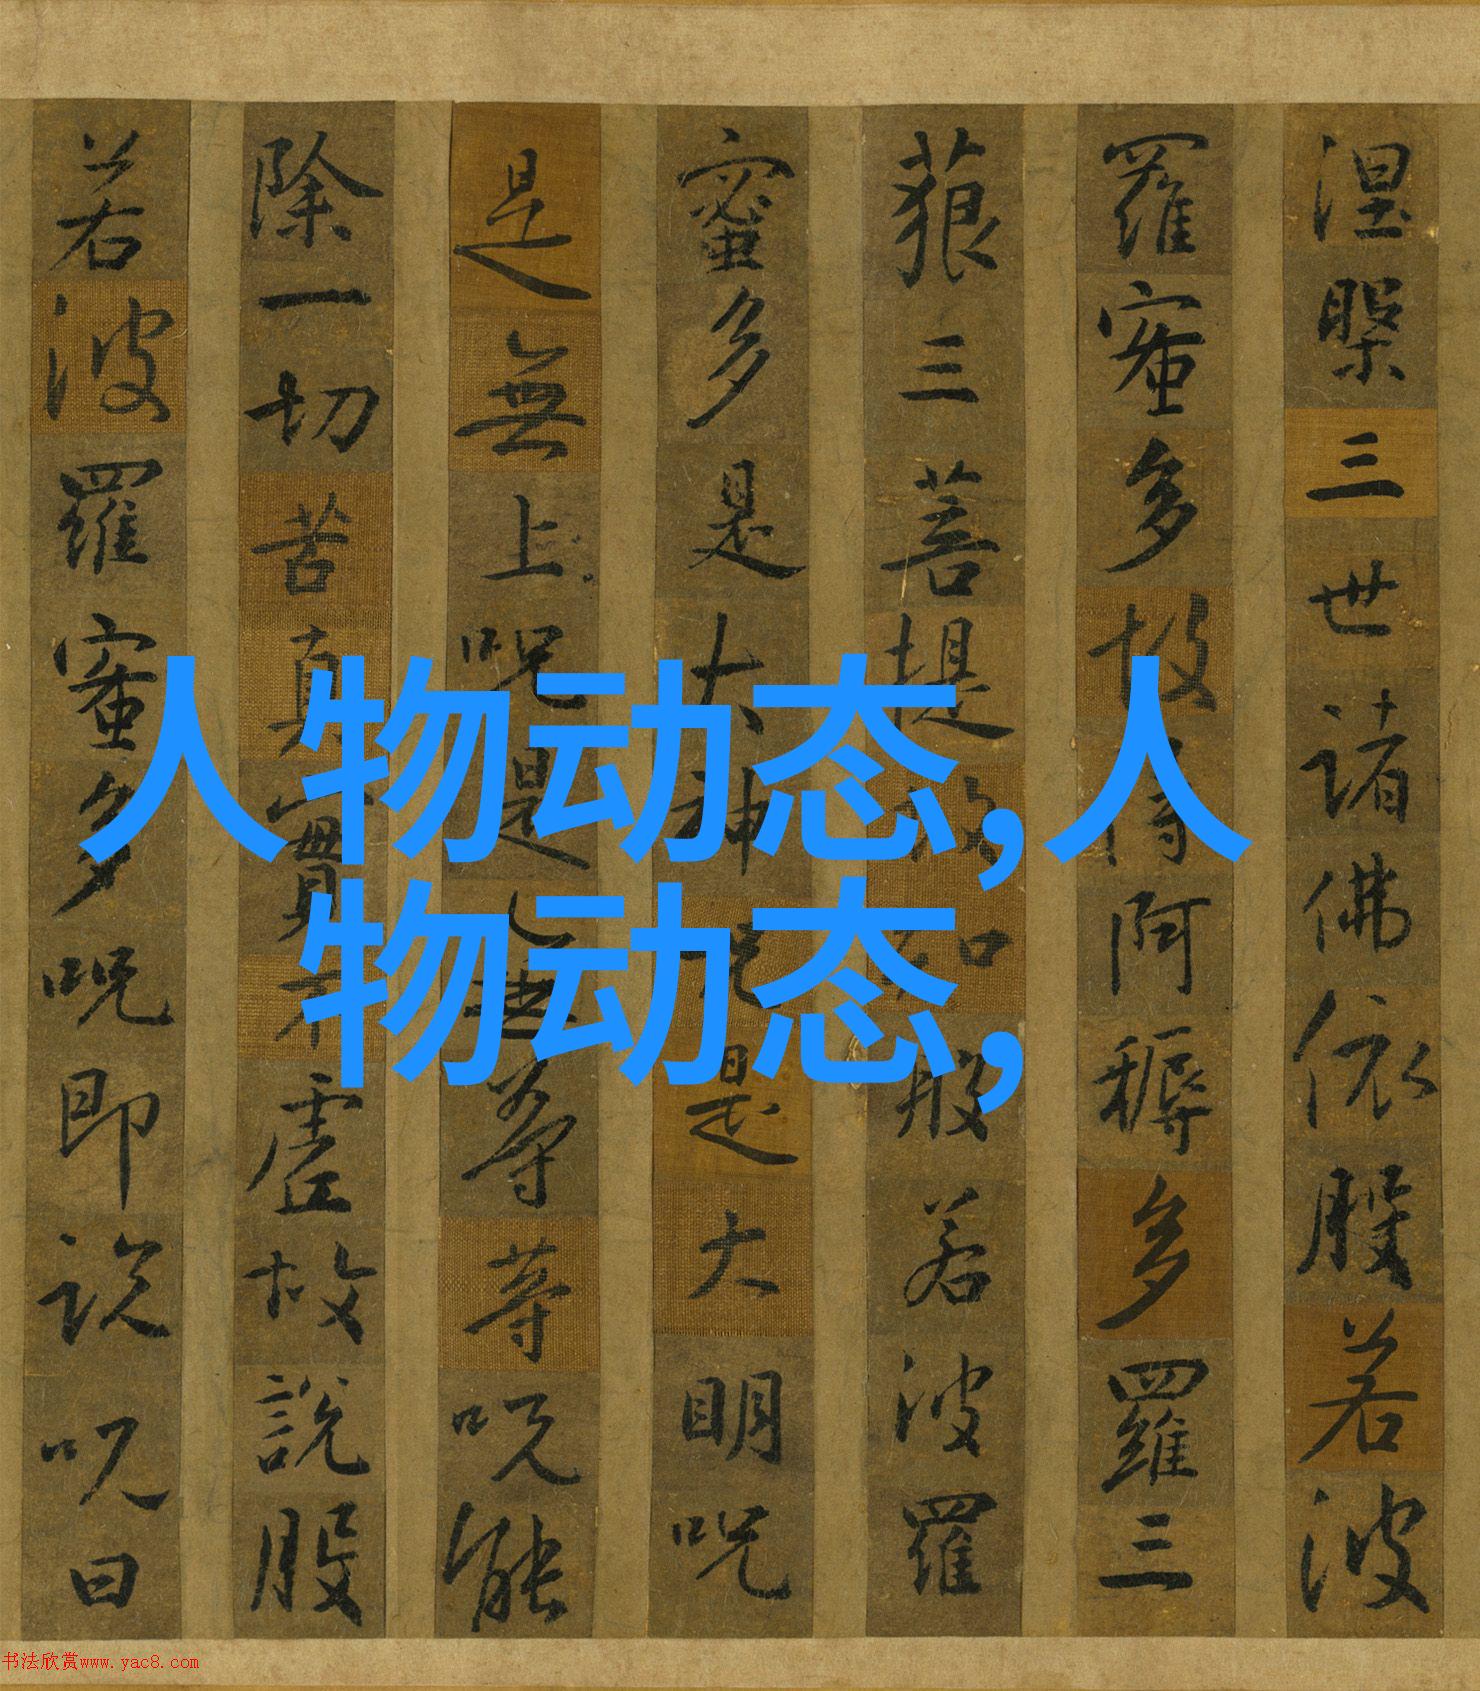 涅槃三世諸佛依般若波
羅蜜多故得阿耨多羅三
藐三菩提故知般若波羅
蜜多是大神呪是大明呪
是無上呪是無等等呪能
除一切苦真實不虛故說般
若波羅蜜多呪即說呪曰
人物动态,人
物动态,
书法欣赏www.yac8.com